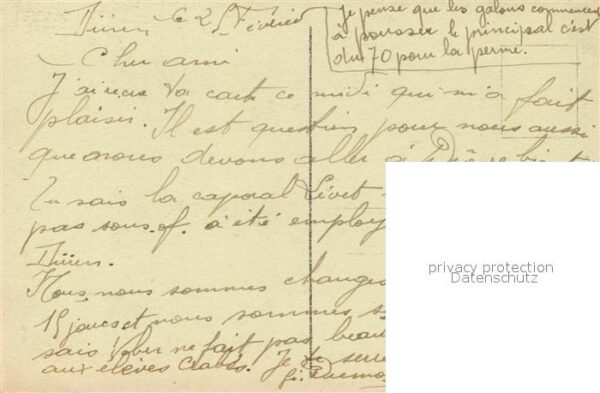 Düren le 25 Février
Je pense que les galons commencent
à pousser le principal c'est
du 70 pour la perme.
Cher ami
J'ai reçu ta carte ce midi qui m'a fait
plaisir. Il est question pour nous aussi
que nous devons aller à
Tu sais la caporal Livet
pas sous. of. a été employ
Düren.
Nous nous sommes changes
15 jours et nous sommes s
sais ne fait pas beau
aux élèves Je te serre
privacy protection
Datenschutz